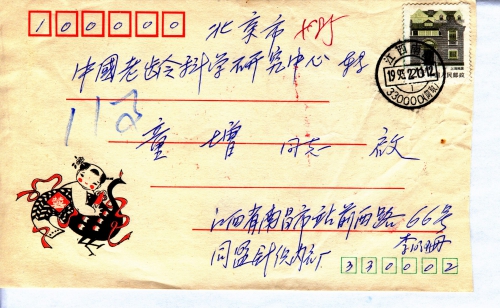 100000
北京市
中國老龄科学研究中心 转
112
童增 同志 启
江西南昌
1993.12.20.12
330000(营投)
中国人民邮政
江西省南昌市站前西路66号
同盟针织内衣厂
330002